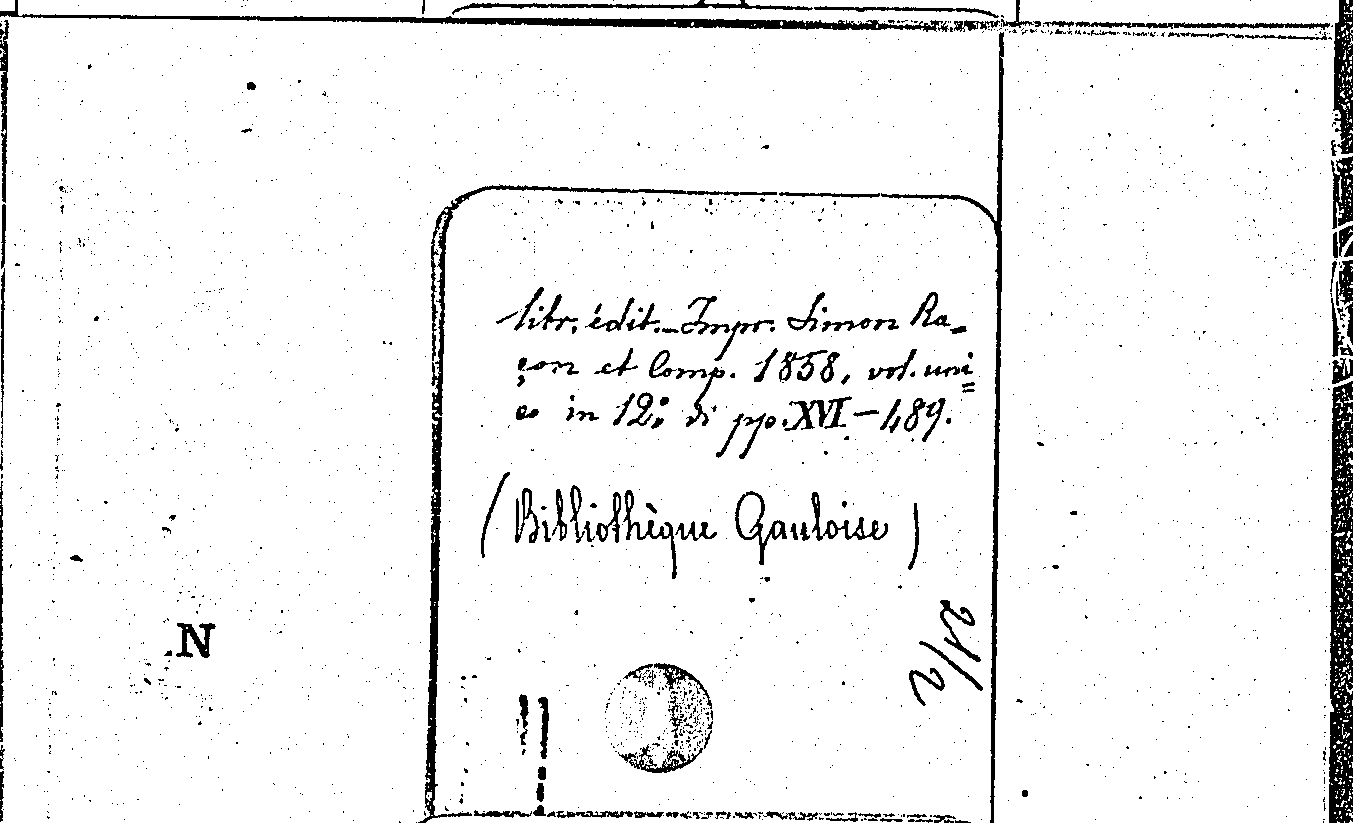 libr. édit. - Impr. Simon Ra-
çon et Comp. 1858, vol. uni=
co in 12.° di pp. XVI - 489.
(Bibliothèque Gauloise)
N